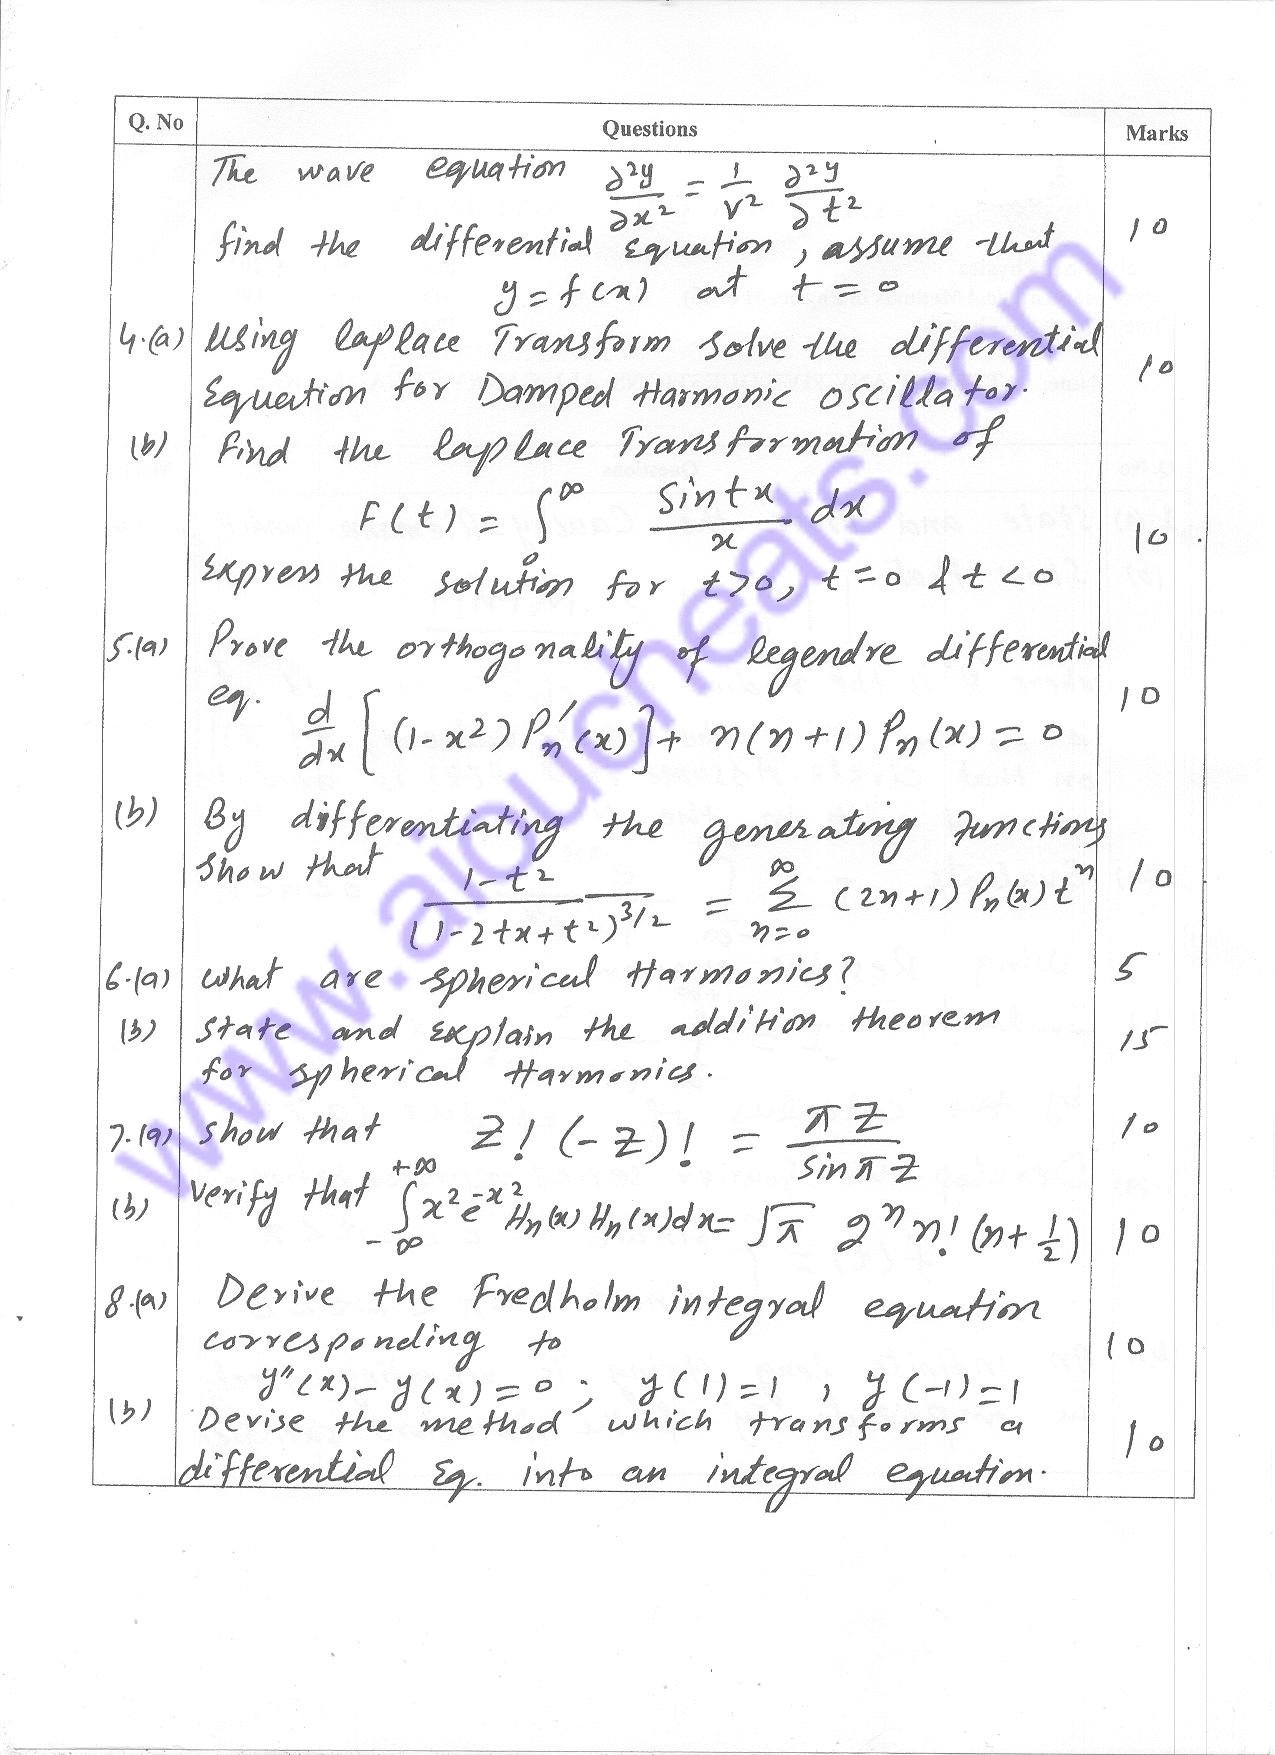 Q. No Questions Marks
The wave equation ∂²y/∂x² = 1/v² ∂²y/∂t²
find the differential equation, assume that 10
y = f(x) at t = 0
4.(a) Using laplace Transform solve the differential
Equation for Damped Harmonic oscillator. 10
(b) Find the laplace Transformation of
F(t) = ∫₀^∞ Sin tx / x dx 10
Express the solution for t>0, t=0 & t<0
5.(a) Prove the orthogonality of legendre differential
eq. d/dx [(1-x²) Pn'(x)] + n(n+1) Pn(x) = 0 10
(b) By differentiating the generating functions
Show that (1-t²)/(1-2tx+t²)^3/2 = Σ_{n=0}^∞ (2n+1) Pn(x) t^n 10
6.(a) What are spherical Harmonics? 5
(b) State and explain the addition theorem
for spherical Harmonics. 15
7.(a) Show that Z! (-Z)! = πZ / sin πZ 10
(b) Verify that ∫_{-∞}^{+∞} x² e^{-x²} Hn(x) Hn(x) dx = √π 2^n n! (n+1/2) 10
8.(a) Derive the Fredholm integral equation
corresponding to 10
y''(x) - y(x) = 0 ; y(1)=1 , y(-1)=1
(b) Devise the method which transforms a
differential Eq. into an integral equation. 10
www.aioucheats.com